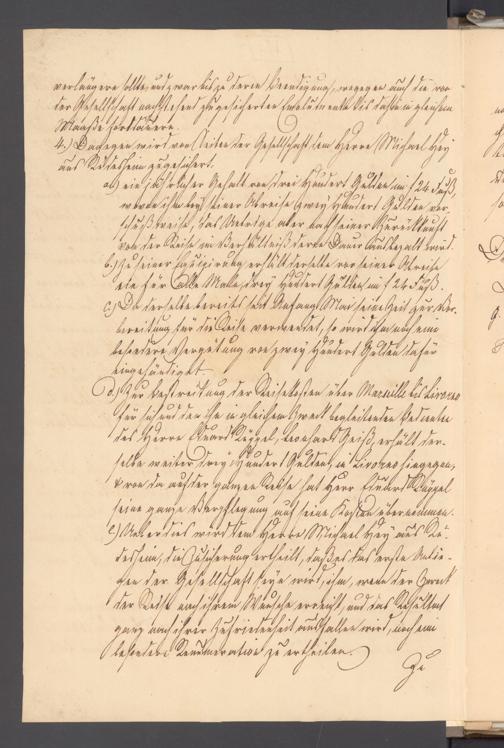 verlängern sollte, und zwar bis zu deren Beendigung, wogegen auch die von
der Gesellschaft nachstehend zugesicherten Emolumente bis dahin in gleichem
Maaße fortdauern.
4.) Dagegen wird von Seiten der Gesellschaft dem Herrn Michael Hey
aus Rüdesheim zugesichert.
a.) ein jährlicher Gehalt von drei Hundert Gulden im f 24 Fuß,
wovon ihm bey seiner Abreise zwey Hundert Gulden vor-
schußweise, das Uebrige aber nach seiner Zurückkunft
von der Reise im Verhältniß deren Dauer ausbezahlt wird.
b.) zu seiner Equipirung erhält derselbe vor seiner Abreise
ein für Alle Male, drey Hundert Gulden im f 24 Fuß.
c.) Da derselbe bereits seit Anfang Mai seine Zeit zur Vor-
bereitung für die Reise verwendet, so wird ihm noch eine
besondere Vergütung von zwey Hundert Gulden dafür
eingehändigt.
d.) Zur Bestreitung der Reisekosten über Marseille bis Livorno
für sich und den ihn in gleichem Zweck begleitenden Bedienten
des Herrn Eduard Rüppel, Leonhard Geiß, erhält der-
selbe weiter drey Hundert Gulden, in Livorno hingegen,
von da auf der ganzen Reise hat Herr Eduard Rüppel
seine ganze Verpflegung auf seine Kosten übernommen.
e.) Ueberdies wird dem Herrn Michael Hey aus Rü-
desheim, die Zusicherung ertheilt, daß es das erste Anlie-
gen der Gesellschaft seyn wird, ihm, wenn der Zweck
der Reise nach ihrem Wunsche erreicht, und das Resultat
ganz nach ihrer Zufriedenheit ausfallen wird, noch eine
besondere Renumeration zu ertheilen.
Zu